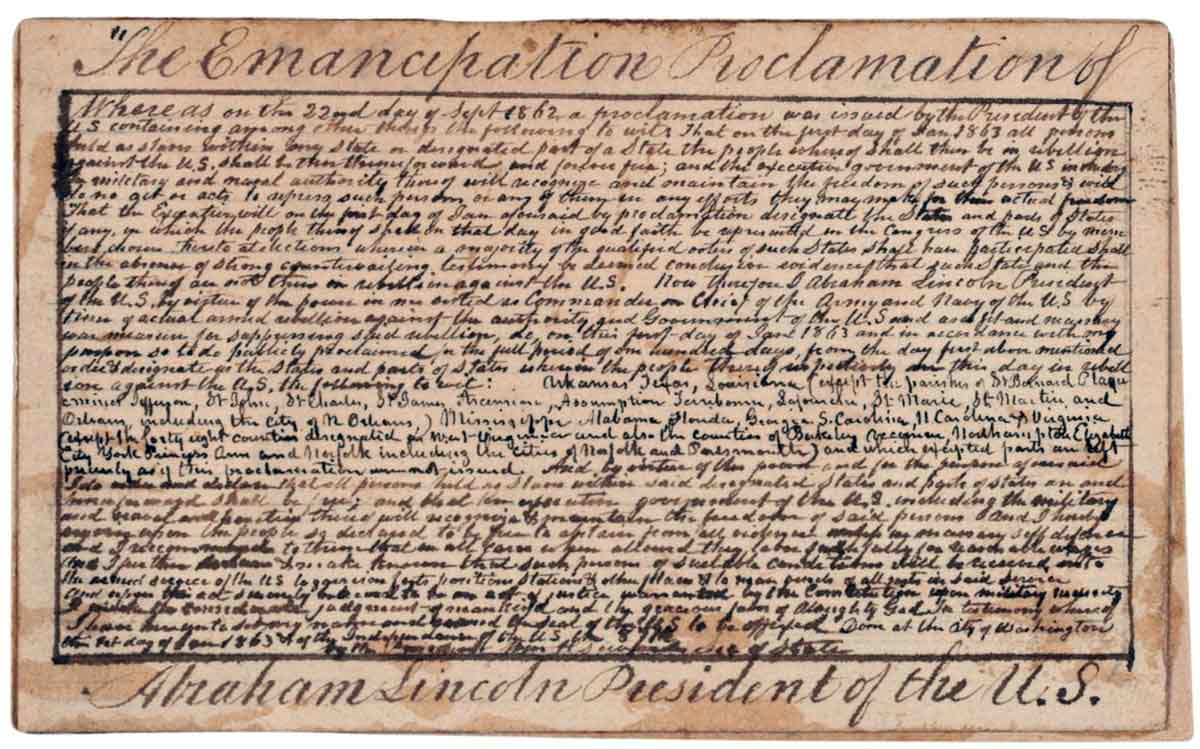 "The Emancipation Proclamation of
Whereas on the 22nd day of Sept 1862, a proclamation was issued by the President of the
U S containing among other things the following to wit: That on the first day of Jan 1863 all persons
held as slaves within any State or designated part of a State the people whereof shall then be in rebellion
against the U.S. shall be then thenceforward and forever free; and the executive government of the US including
the military and naval authority thereof will recognize and maintain the freedom of such persons & will
do no act or acts to repress such persons or any of them in any efforts they may make for their actual freedom
That the Executive will on the first day of Jan aforesaid by proclamation designate the States and parts of States
if any, in which the people thereof shall on that day in good faith be represented in the Congress of the US by mem
bers chosen thereto at elections wherein a majority of the qualified voters of such States shall have participated shall
in the absence of strong countervailing testimony be deemed conclusive evidence that such State and the
people thereof are not then in rebellion against the U.S. Now therefore I Abraham Lincoln President
of the U.S. by virtue of the power in me vested as Commander in Chief of the Army and Navy of the U S in
time of actual armed rebellion against the authority and Government of the U.S and as a fit and necessary
war measure for suppressing said rebellion, do, on this first day of Jan 1863 and in accordance with my
purpose so to do publicly proclaimed for the full period of one hundred days, from the day first above mentioned
order & designate as the States and parts of States wherein the people thereof respectively are this day in rebell
ion against the U.S. the following to wit: Arkansas Texas, Louisiana (except the parishes of St Bernard Plaque
mines Jefferson, St John, St Charles, St James Ascension, Assumption Terrebonne, Lafourche, St Marie, St Martin, and
Orleans, including the City of N Orleans,) Mississippi Alabama, Florida, Georgia S. Carolina, N Carolina & Virginia
(except the forty eight counties designated as West Virginia and also the counties of Berkeley Accomac, Northampton Elizabeth
City York Princess Ann and Norfolk including the cities of Norfolk and Portsmouth) and which excepted parts are left
precisely as if this proclamation were not issued. And by virtue of the power and for the purpose aforesaid
I do order and declare that all persons held as slaves within said designated States and parts of States are and
henceforward shall be free; and that the executive government of the U.S. including the military
and naval authorities thereof will recognize & maintain the freedom of said persons And I hereby
enjoin upon the people so declared to be free to abstain from all violence unless in necessary self defence
and I recommend to them that in all cases when allowed they labor faithfully for reasonable wages
And I further declare & make known that such persons of suitable condition will be received into
the armed service of the US to garrison forts positions stations & other places & to man vessels of all sorts in said service
And upon this act sincerely believed to be an act of justice warranted by the Constitution upon military necessity
I invoke the considerate judgement of mankind and the gracious favor of Almighty God In testimony whereof
I have hereunto set my name and caused the seal of the US to be affixed Done at the City of Washington
the 1st day of Jan 1863 & of the Independence of the U S the 87th
by the President Wm H Seward Sec of State
Abraham Lincoln President of the U.S.